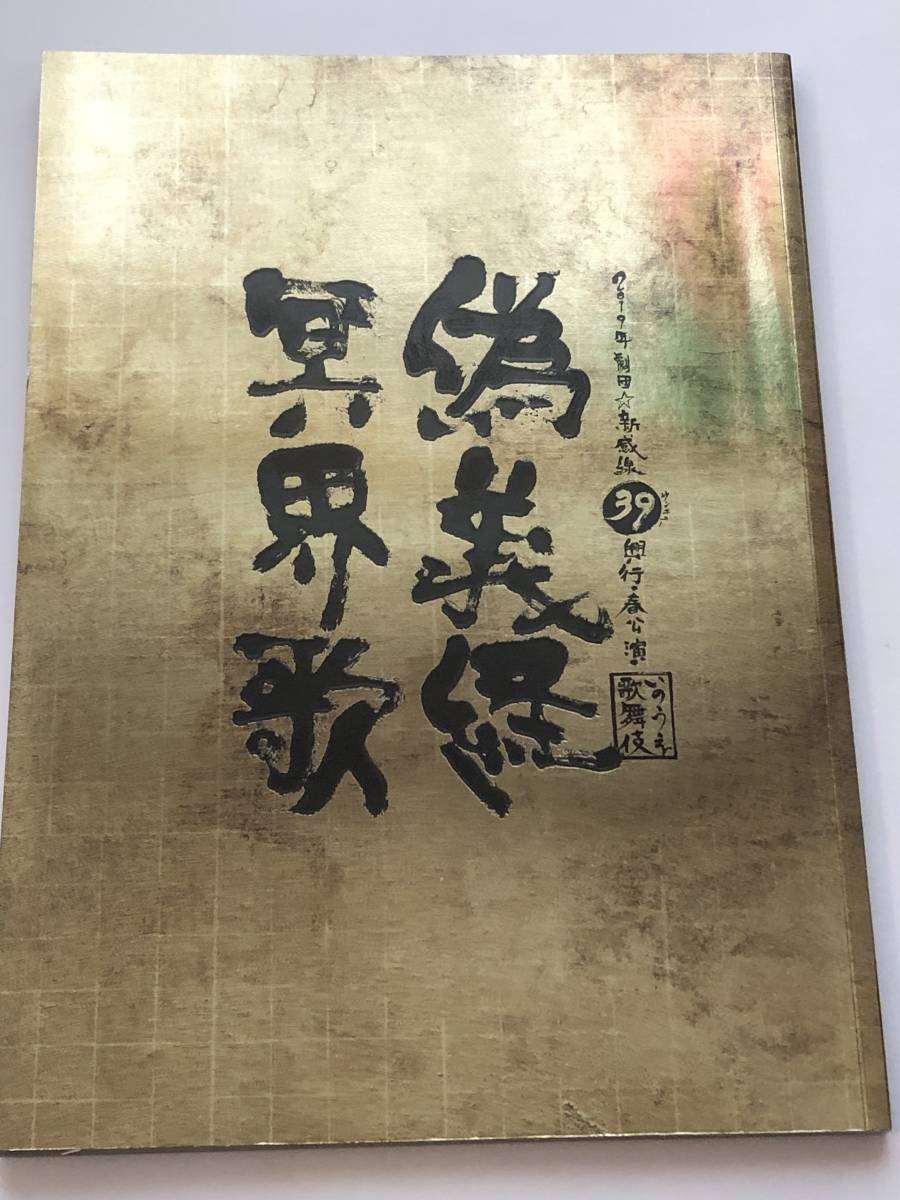 2019年劇団☆新感線
39
サンキュー
興行・春公演
いのうえ
歌舞伎
偽義経
冥界歌